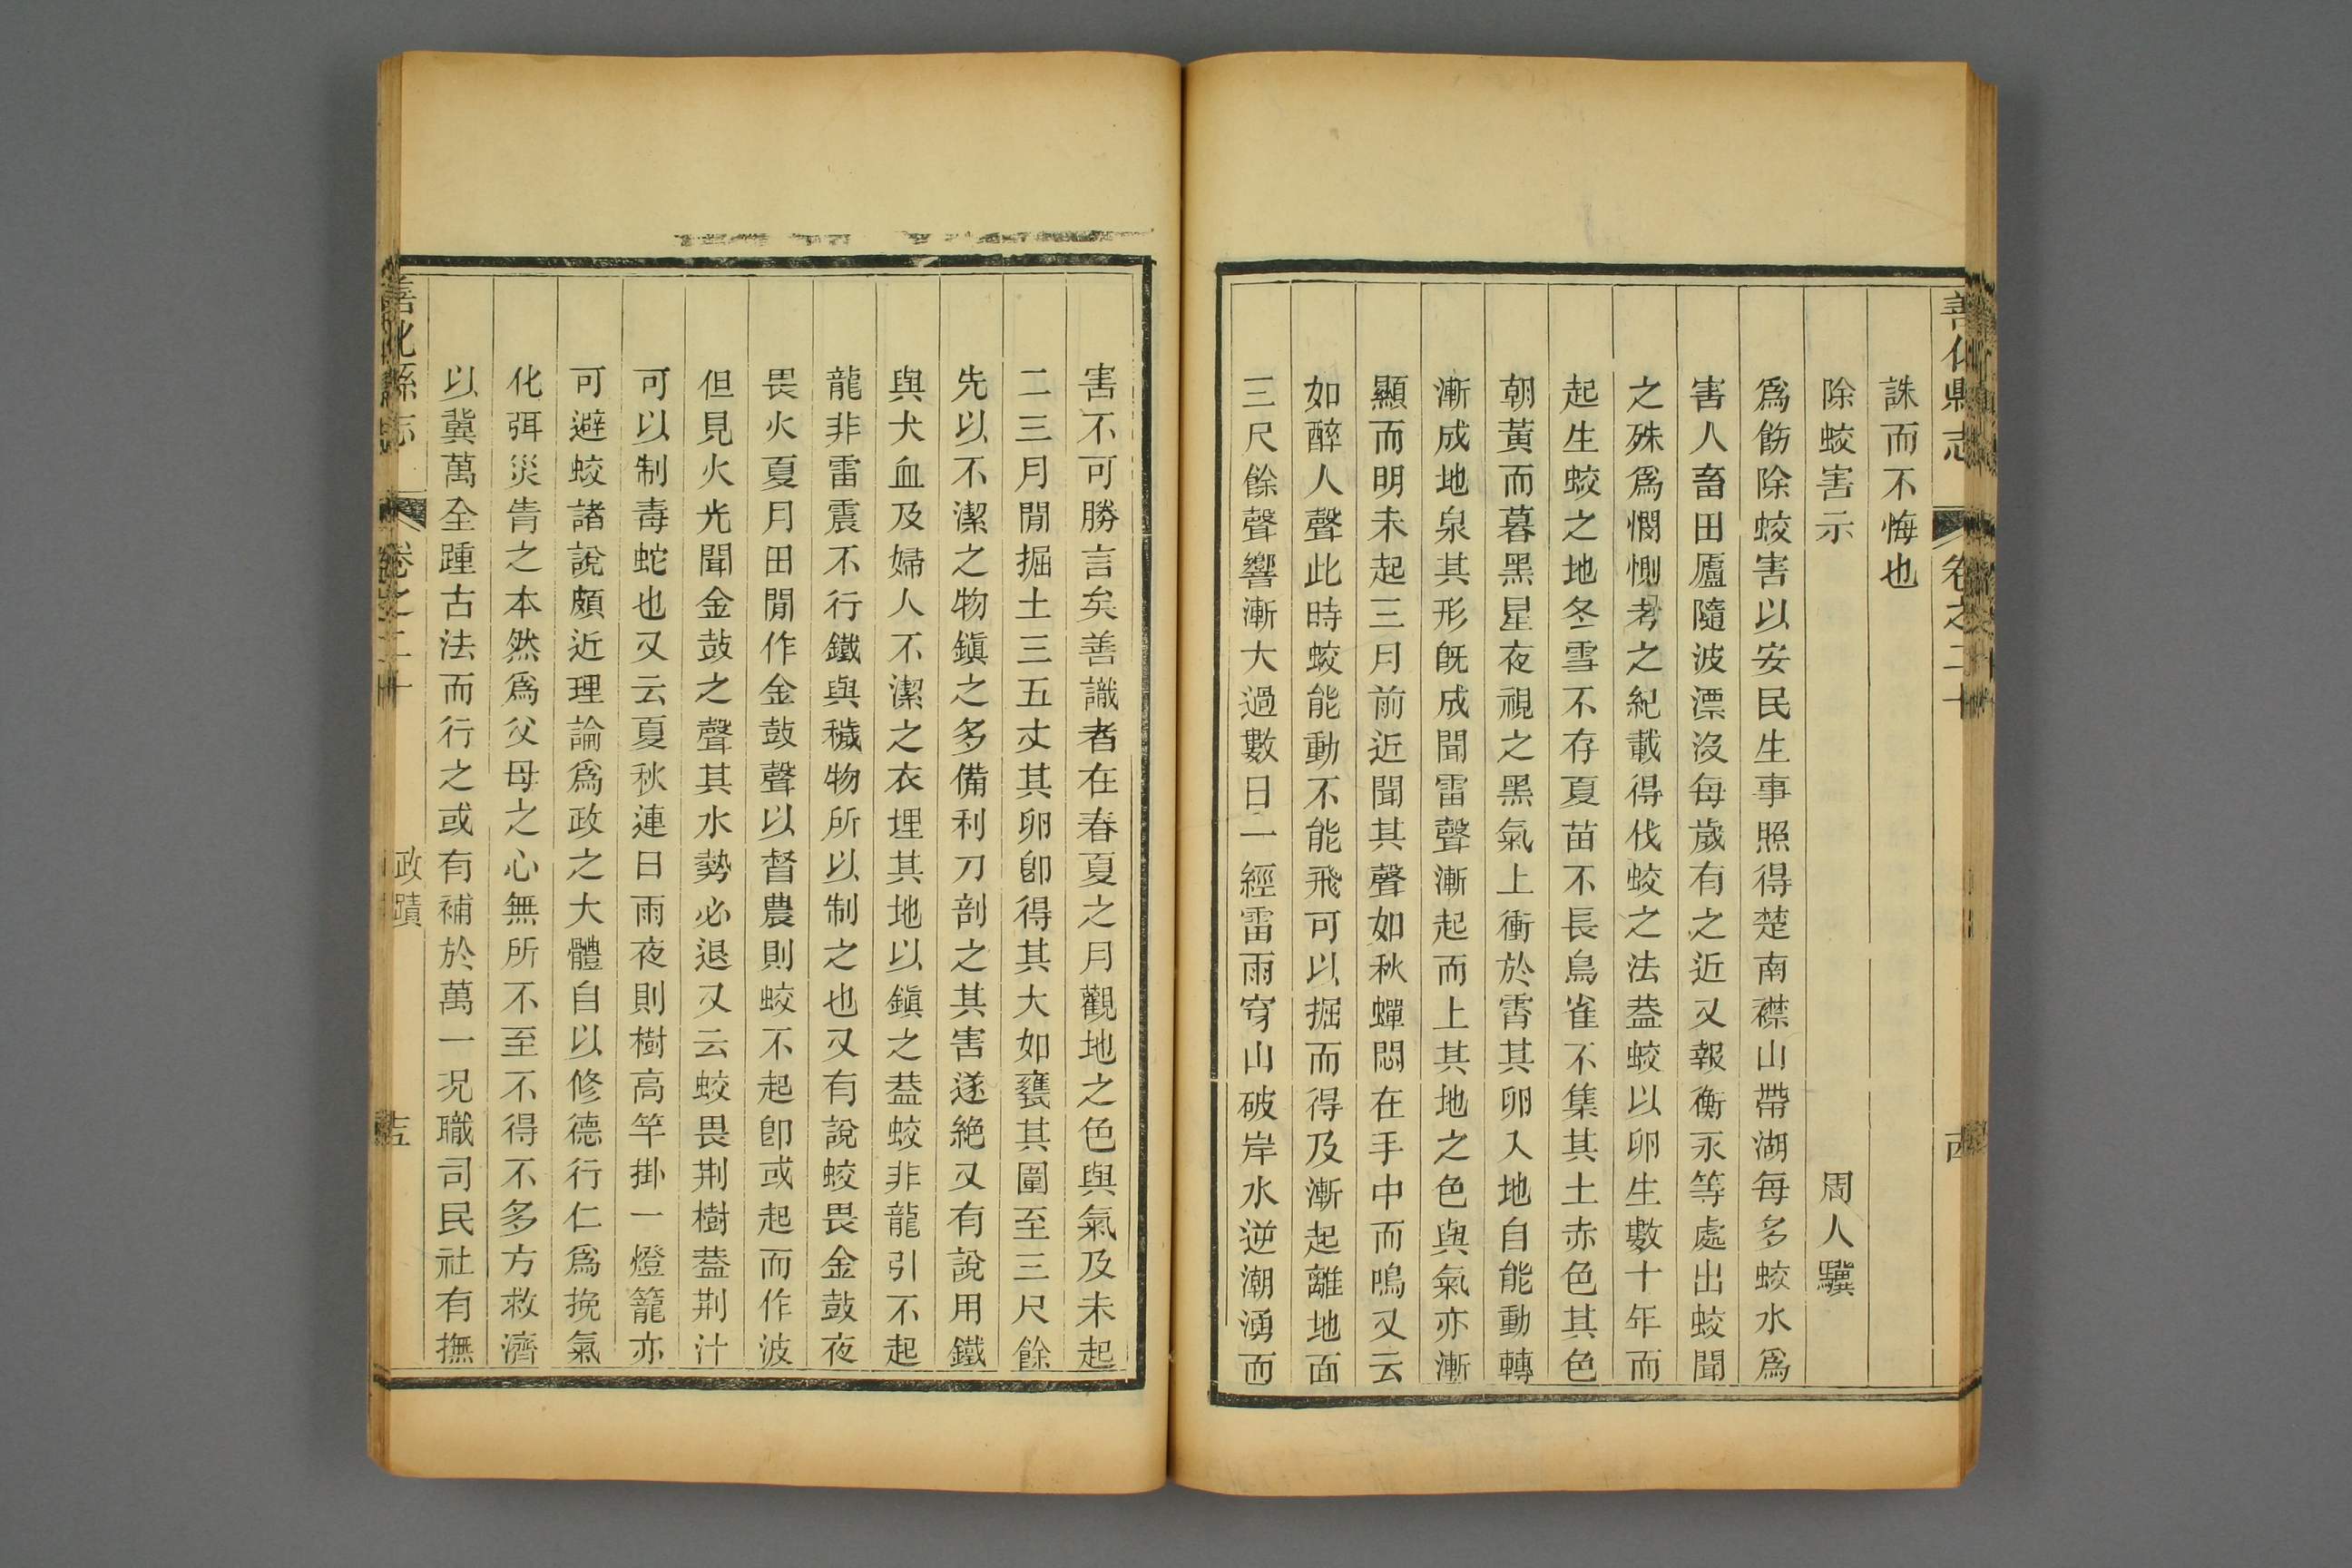 善化縣志
卷之二十
誅而不悔也
除蛟害示
周人驥
爲飭除蛟害以安民生事照得楚南襟山帶湖每多蛟水爲
害人畜田廬隨波漂沒每歲有之近又報衡永等處出蛟聞
之殊爲憫惻考之紀載得伐蛟之法葢蛟以卵生數十年而
起生蛟之地冬雪不存夏苗不長鳥雀不集其土赤色其色
朝黃而暮黑星夜視之黑氣上衝於霄其卵入地自能動轉
漸成地泉其形旣成聞雷聲漸起而上其地之色與氣亦漸
顯而明未起三月前近聞其聲如秋蟬悶在手中而鳴又云
如醉人聲此時蛟能動不能飛可以掘而得及漸起離地面
三尺餘聲響漸大過數日一經雷雨穿山破岸水逆潮湧而
害不可勝言矣善識者在春夏之月觀地之色與氣及未起
二三月閒掘土三五丈其卵卽得其大如甕其圍至三尺餘
先以不潔之物鎭之多備利刀剖之其害遂絶又有說用鐵
與犬血及婦人不潔之衣埋其地以鎭之葢蛟非龍引不起
龍非雷震不行鐵與穢物所以制之也又有說蛟畏金鼓夜
畏火夏月田閒作金鼓聲以督農則蛟不起卽或起而作波
但見火光聞金鼓之聲其水勢必退又云蛟畏荆樹葢荆汁
可以制毒蛇也又云夏秋連日雨夜則樹高竿掛一燈籠亦
可避蛟諸說頗近理論爲政之大體自以修德行仁爲挽氣
化弭災眚之本然爲父母之心無所不至不得不多方救濟
以冀萬全踵古法而行之或有補於萬一况職司民社有撫
善化縣志
卷之二十
政蹟